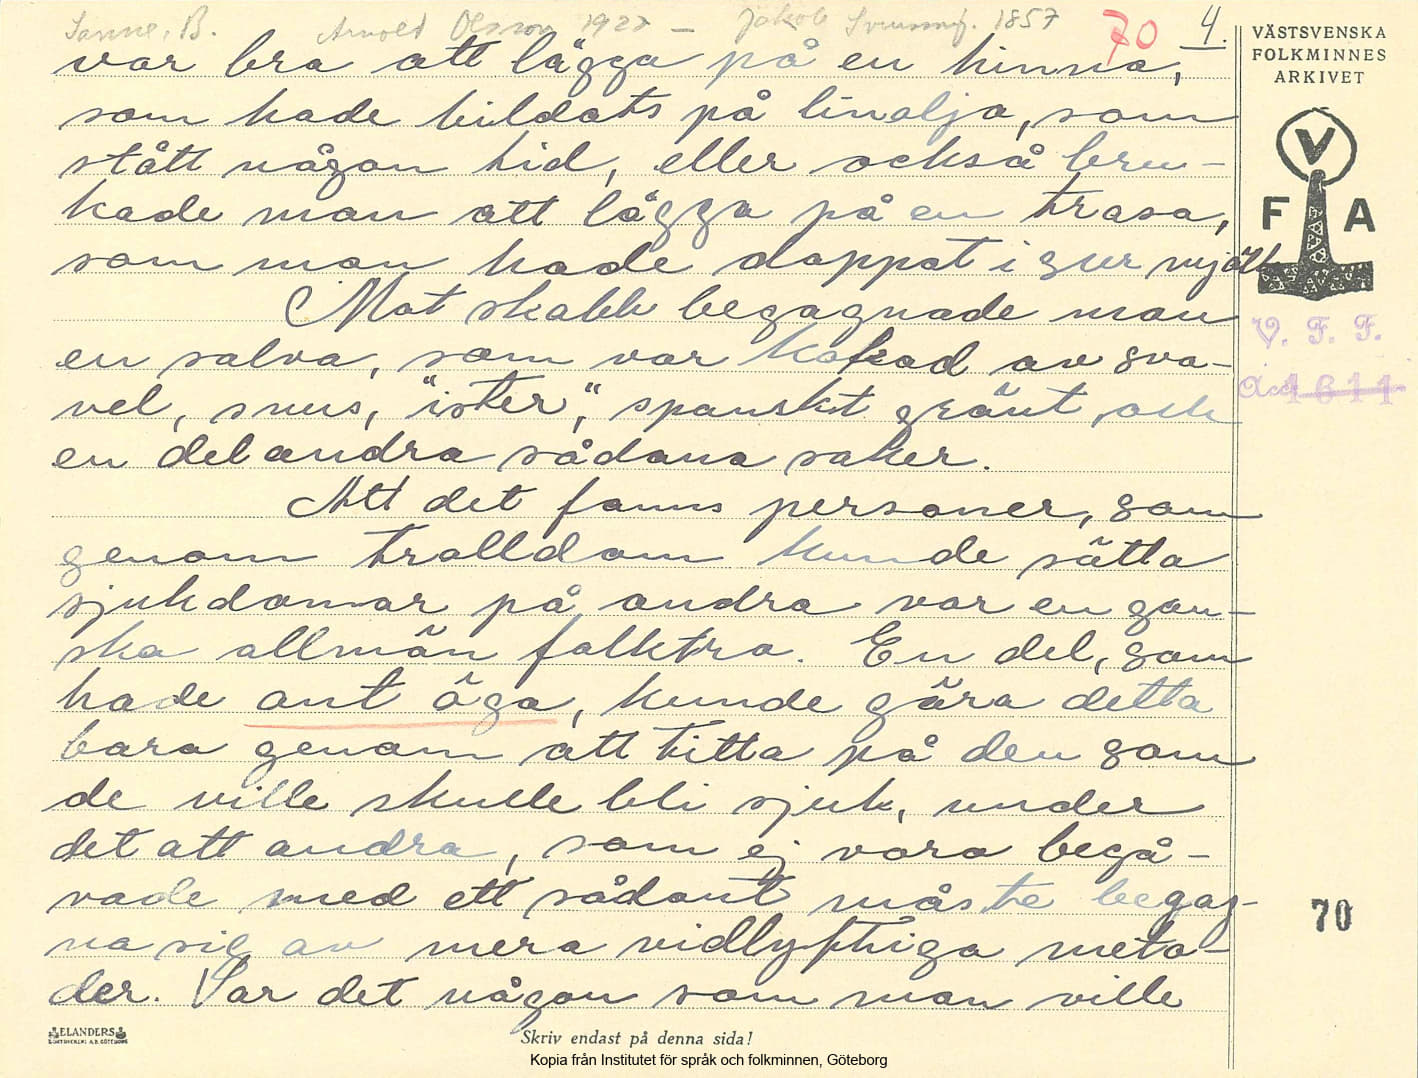 Sanne, B. Arnold Olsson 1927 – Jakob Svensson f. 1857 70 4.
var bra att lägga på en hinna,
som hade bildats på linolja, som
stått någon tid, eller också bru-
kade man att lägga på en trasa,
som man hade doppat i sur mjölk
Mot skabb begagnade man
en salva, som var kokad av sva-
vel, snus, "ister", spanskt grönt, och
en del andra sådana saker.
Att det fanns personer, som
genom trolldom kunde sätta
sjukdomar på andra var en gan-
ska allmän folktro. En del, som
hade ont öga, kunde göra detta
bara genom att titta på den som
de ville skulle bli sjuk, under
det att andra, som ej voro begå-
vade med ett sådant måste begag-
na sig av mera vidlyftiga meto-
der. Var det någon som man ville
VÄSTSVENSKA
FOLKMINNES
ARKIVET
V
F A
V. F. F.
Acc 1611
70
ELANDERS
Skriv endast på denna sida!
Kopia från Institutet för språk och folkminnen, Göteborg